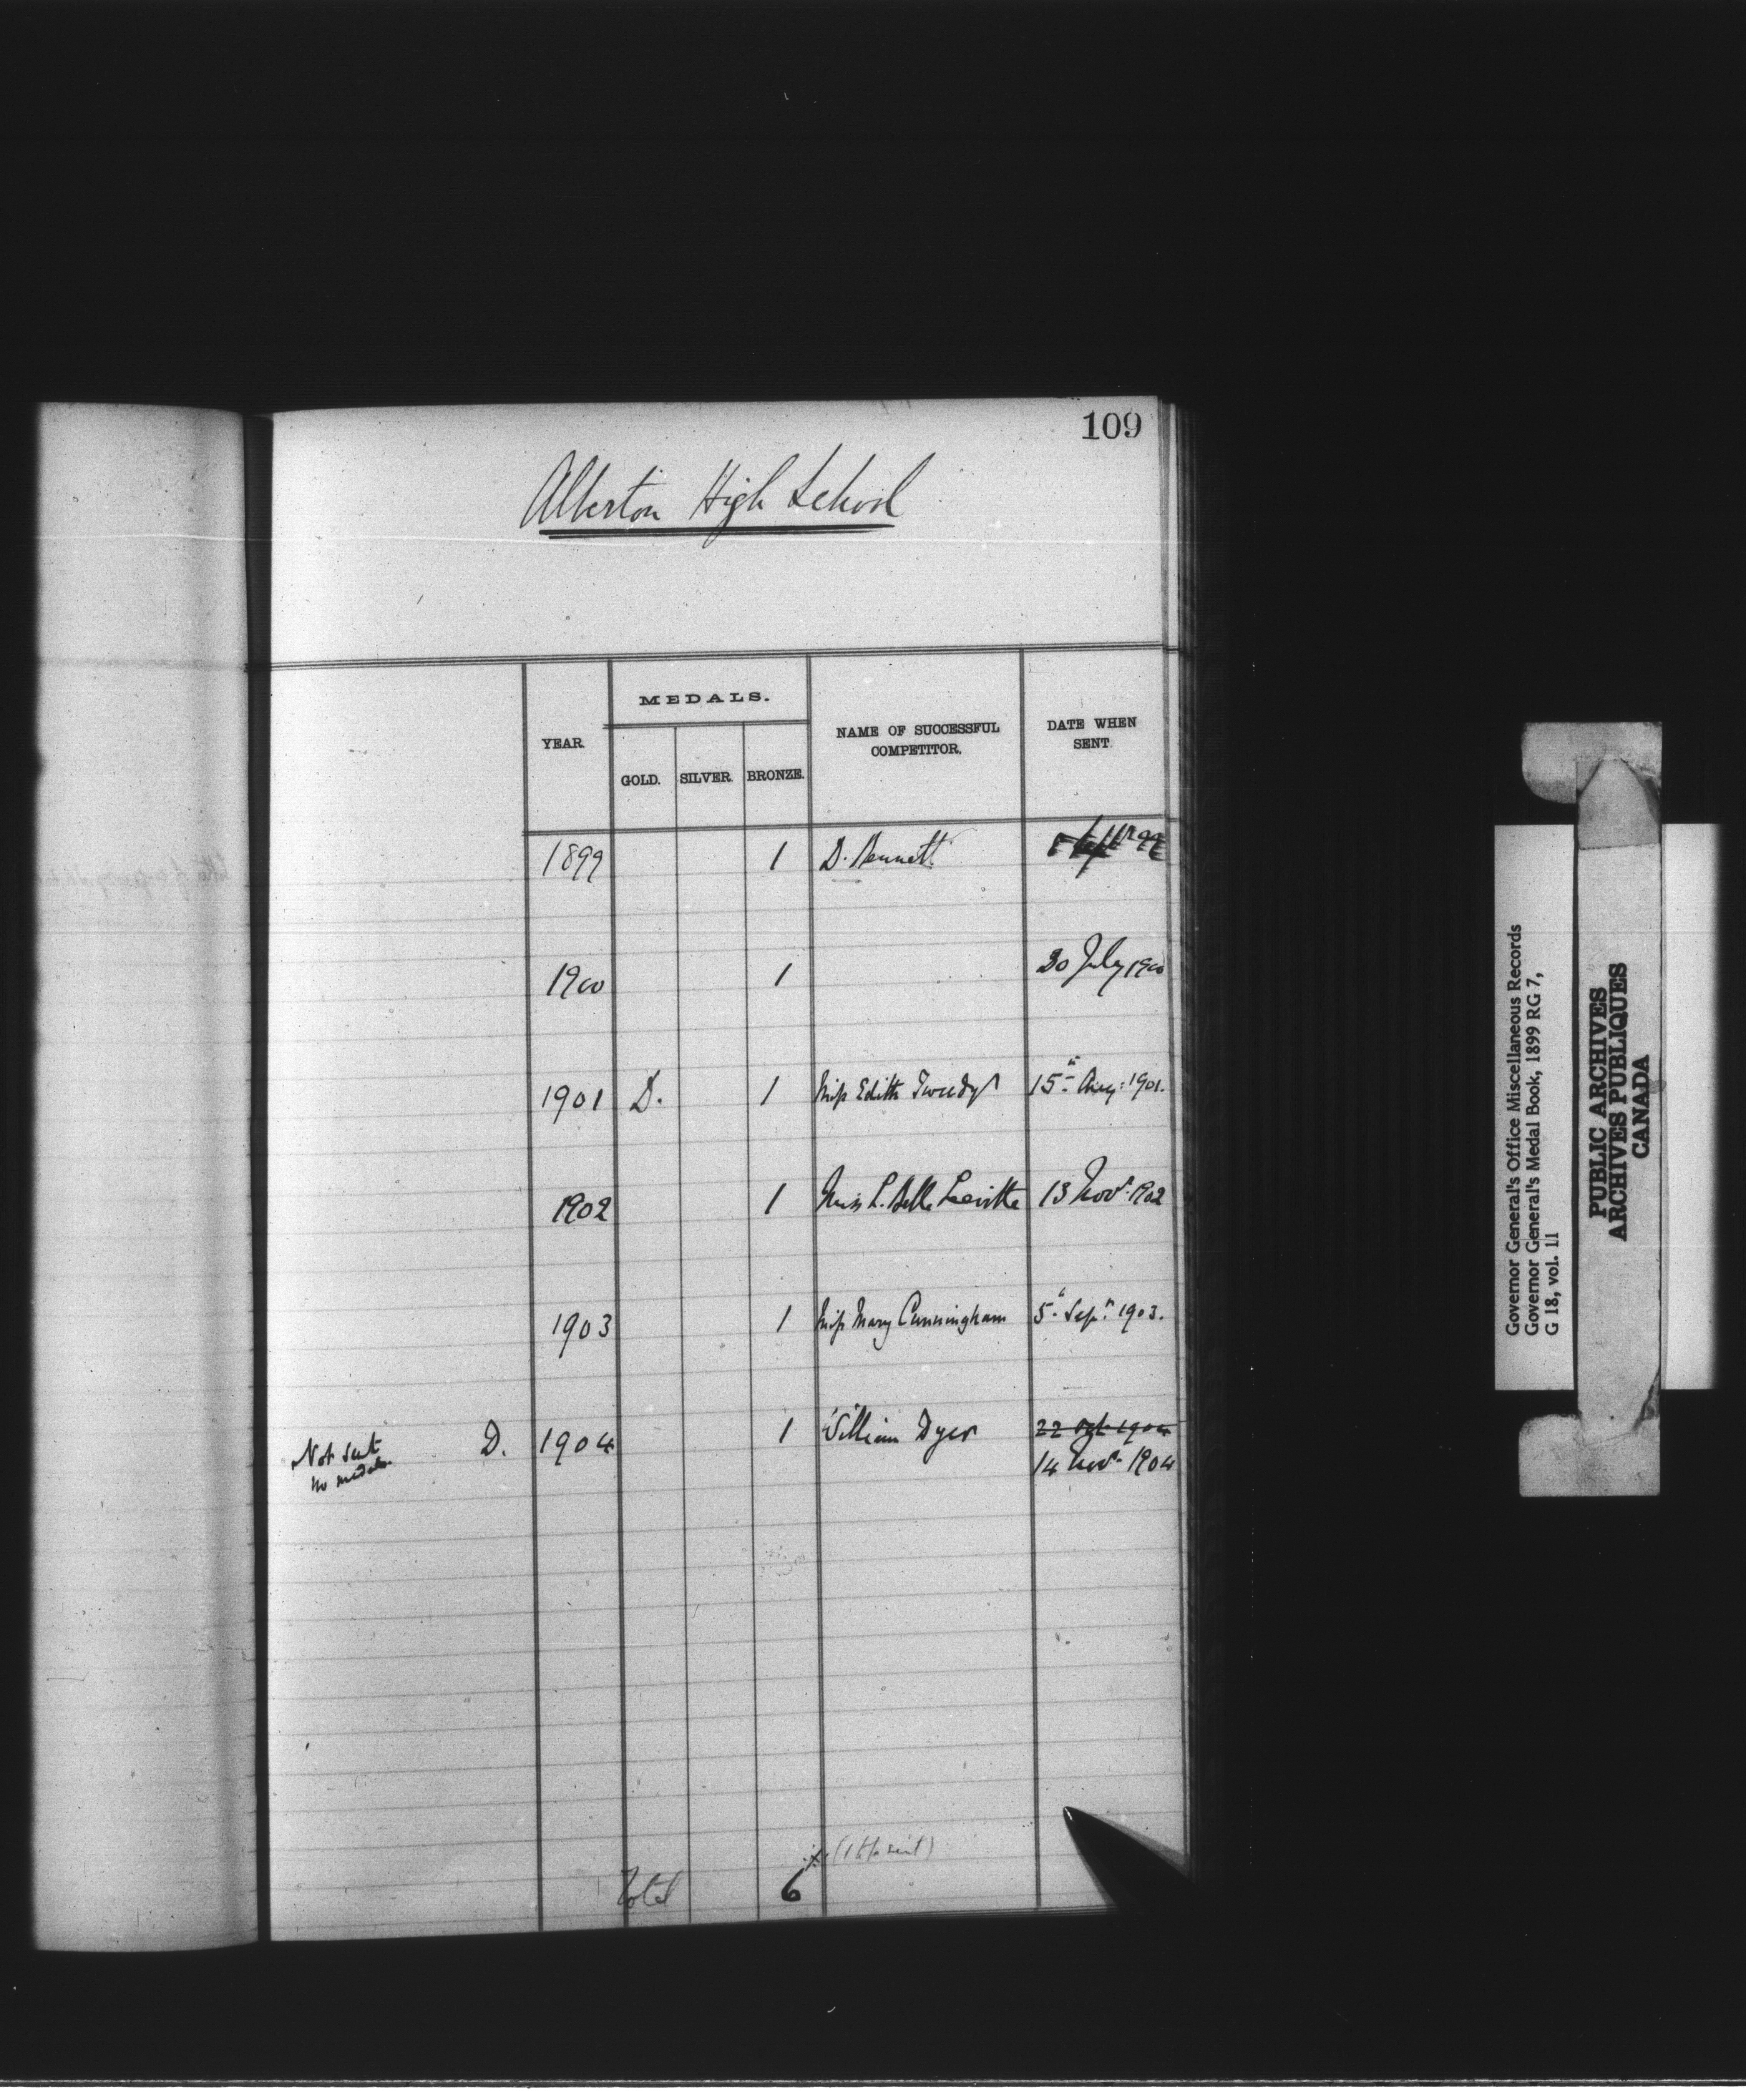 109
Alberton High School
YEAR. MEDALS. NAME OF SUCCESSFUL COMPETITOR. DATE WHEN SENT.
GOLD. SILVER. BRONZE.
1899 1 D. Bennett
1900 1 30 July 1900
1901 D. 1 Miss Edith Tweedy 15th Aug: 1901.
1902 1 Miss L. Belle 13 Novr. 1902
1903 1 Miss Mary Cunningham 5th Sepr. 1903.
Not sent D. 1904 1 William Dyer 22 1904
no medals 14 Novr. 1904
Total 6
Governor General's Office Miscellaneous Records
Governor General's Medal Book, 1899 RG 7,
G 18, vol. 11
PUBLIC ARCHIVES
ARCHIVES PUBLIQUES
CANADA